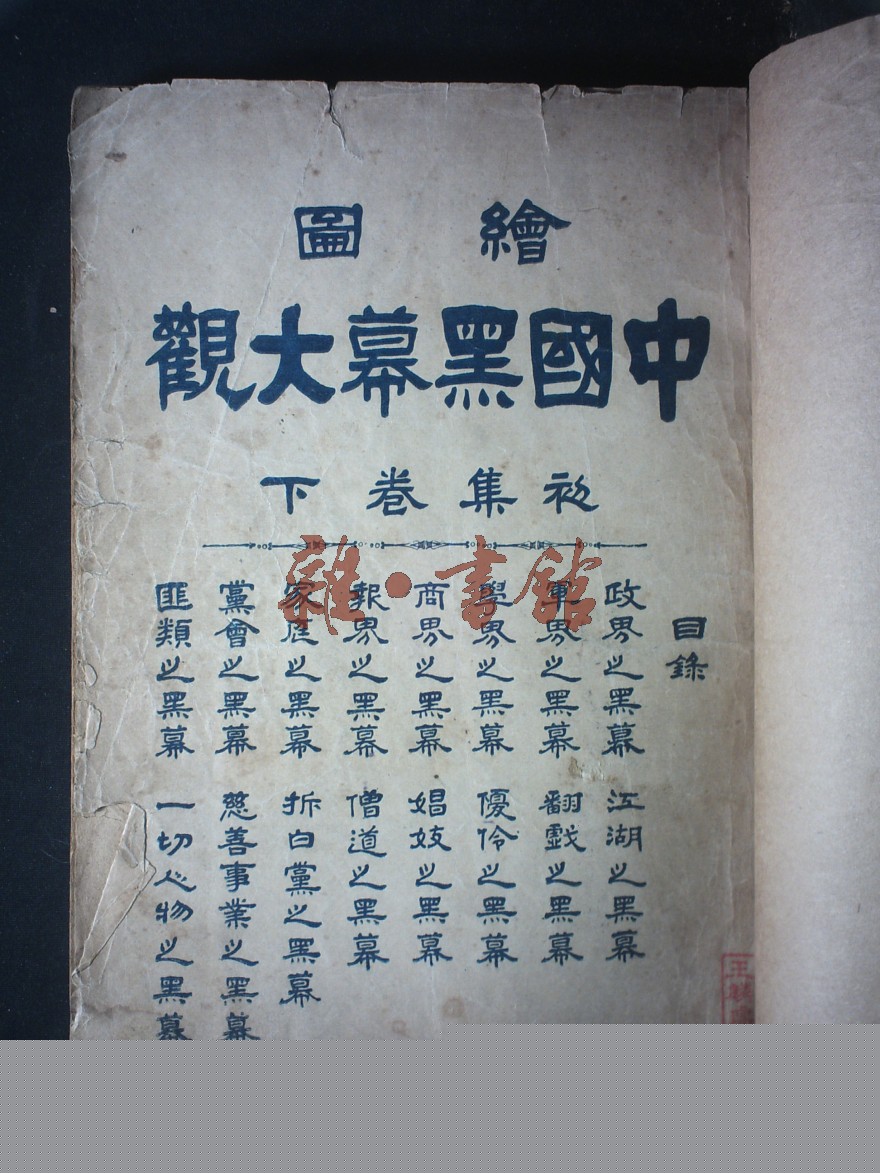 繪圖
中國黑幕大觀
初集卷下
目錄
政界之黑幕
江湖之黑幕
軍界之黑幕
翻戲之黑幕
學界之黑幕
優伶之黑幕
商界之黑幕
娼妓之黑幕
報界之黑幕
僧道之黑幕
家庭之黑幕
拆白黨之黑幕
黨會之黑幕
慈善事業之黑幕
匪類之黑幕
一切人物之黑幕
雜·書館